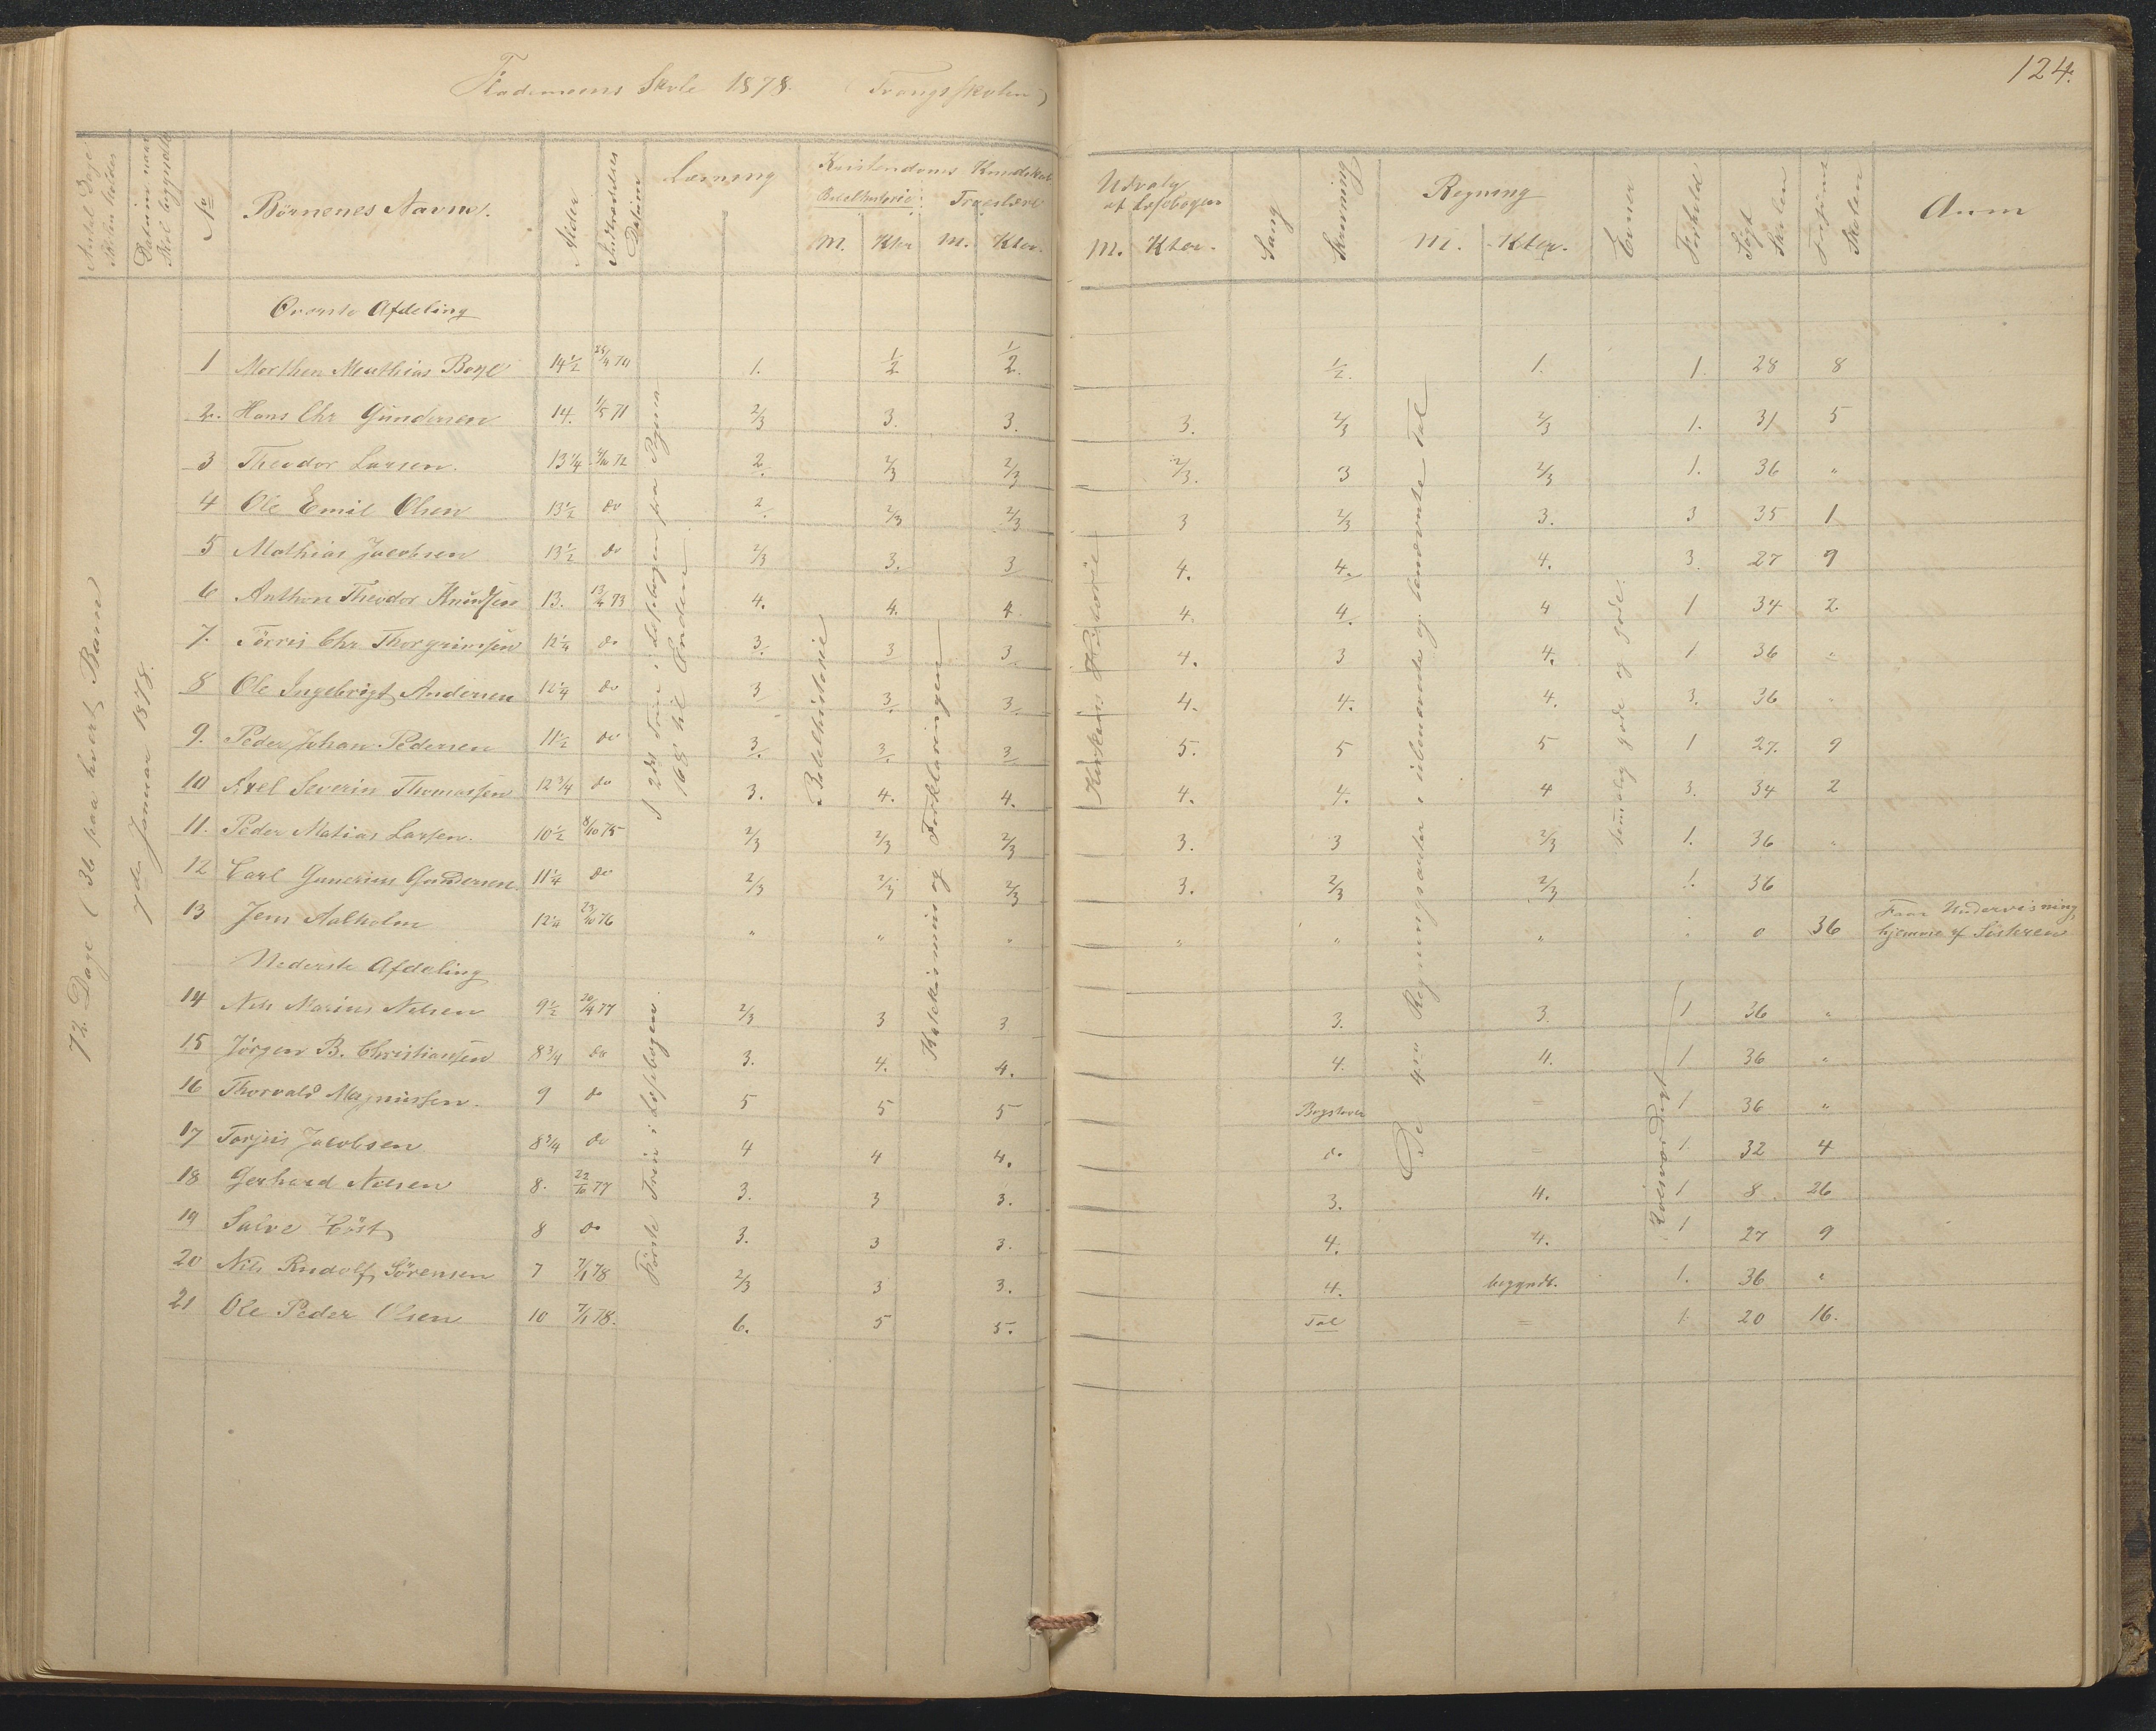 Skole 1878. (Trangsskolen)
124.
Antal Dage Skolen holdes
Datum naar Skol begyndte
No
Børnenes Navne.
Alder
Indtrædelses Datum
Læsning
Kristendoms Kundskab
Bibelhistorie Troeslære
M. Kter M. Kter.
Udvalg af Læsebogen
M. Kter.
Sang
Skrivning
Regning
M. Kter.
Evner
Forhold
Søgt Skolen
Forsømt Skolen
Anm
72 Dage (36 paa hvert Barn
7de Januar 1878.
Øverste Afdeling
1 Morthen Mathias Boye 14½ 74 1. ½ ½. ½. 1. 1. 28 8
2. Hans Chr Gundersen 14. 1/5 71 2/3 3. 3. 3. 2/3 2/3 1. 31 5
3 Theodor Larsen. 13¼ 72 2. 2/3 2/3 2/3. 3 2/3 1. 36 "
4 Ole Emil Olsen 13½ do 2. 2/3 2/3 3 2/3 3. 3 35 1
5 Mathias Jacobsen 13½ do 2/3 3. 3 4. 4. 4. 3. 27 9
6 Anthon Theodor Knudsen 13. 13/4 73 4. 4. 4 4. 4. 4 1 34 2.
7. Tørris Chr Thorgrimsen 12¼ do 3. 3 3. 4. 3 4. 1 36 "
8 Ole Ingebrigt Andersen 12¼ do 3 3. 3. 4. 4. 4. 3. 36 "
9. Peder Johan Pedersen 11½ do 3. 3. 3 5. 5 5 1 27. 9
10 Axel Severin Thomassen 12¾ do 3. 4. 4. 4. 4. 4 3. 34 2
11. Peder Matias Larsen. 10½ 8/10 75 2/3 2/3 2/3 3. 3 2/3 1. 36 "
12 Carl Gunerius Gundersen. 11¼ do 2/3 2/3 2/3 3. 2/3 2/3 1. 36
13 Jens Aalholm 12¼ 23/10 76 " " " " " " " 0 36 Faar Undervisning hjemme af Søsteren
Nederste Afdeling
14 Nils Marius Nilsen 9½ 20/4 77 2/3 3 3 3. 3. 1 36 "
15 Jörgen B. Christiansen 8¾ do 3. 4. 4. 4. 4. 1 36 "
16 Thorvald Magnussen. 9 do 5 5 5 Bogstaver = 1 36 "
17 Torjus Jacobsen 8¾ do 4 4 4. do = 1. 32 4
18 Gerhard Nilsen 8. 22/10 77 3. 3 3. 3. 4. 1 8 26
19 Salve 8 do 3. 3 3. 4. 4. 1 27 9
20 Nils Rudolf Sörensen 7 7/1 78 2/3 3 3. 4. begyndt. 1. 36 "
21 Ole Peder Olsen 10 7/1 78. 6. 5 5. Tal = 1. 20 16.
I 2det Trin i Læsebogen fra Pagina 168 til Enden.
Første Trin i Læsebogen.
Bibelhistorie
Katekismus og Forklaringen
Kirkens Historie
De 4re Regningsarter i ubenævnte og benævnte Tal
temmelig gode og gode.
Roesværdigt